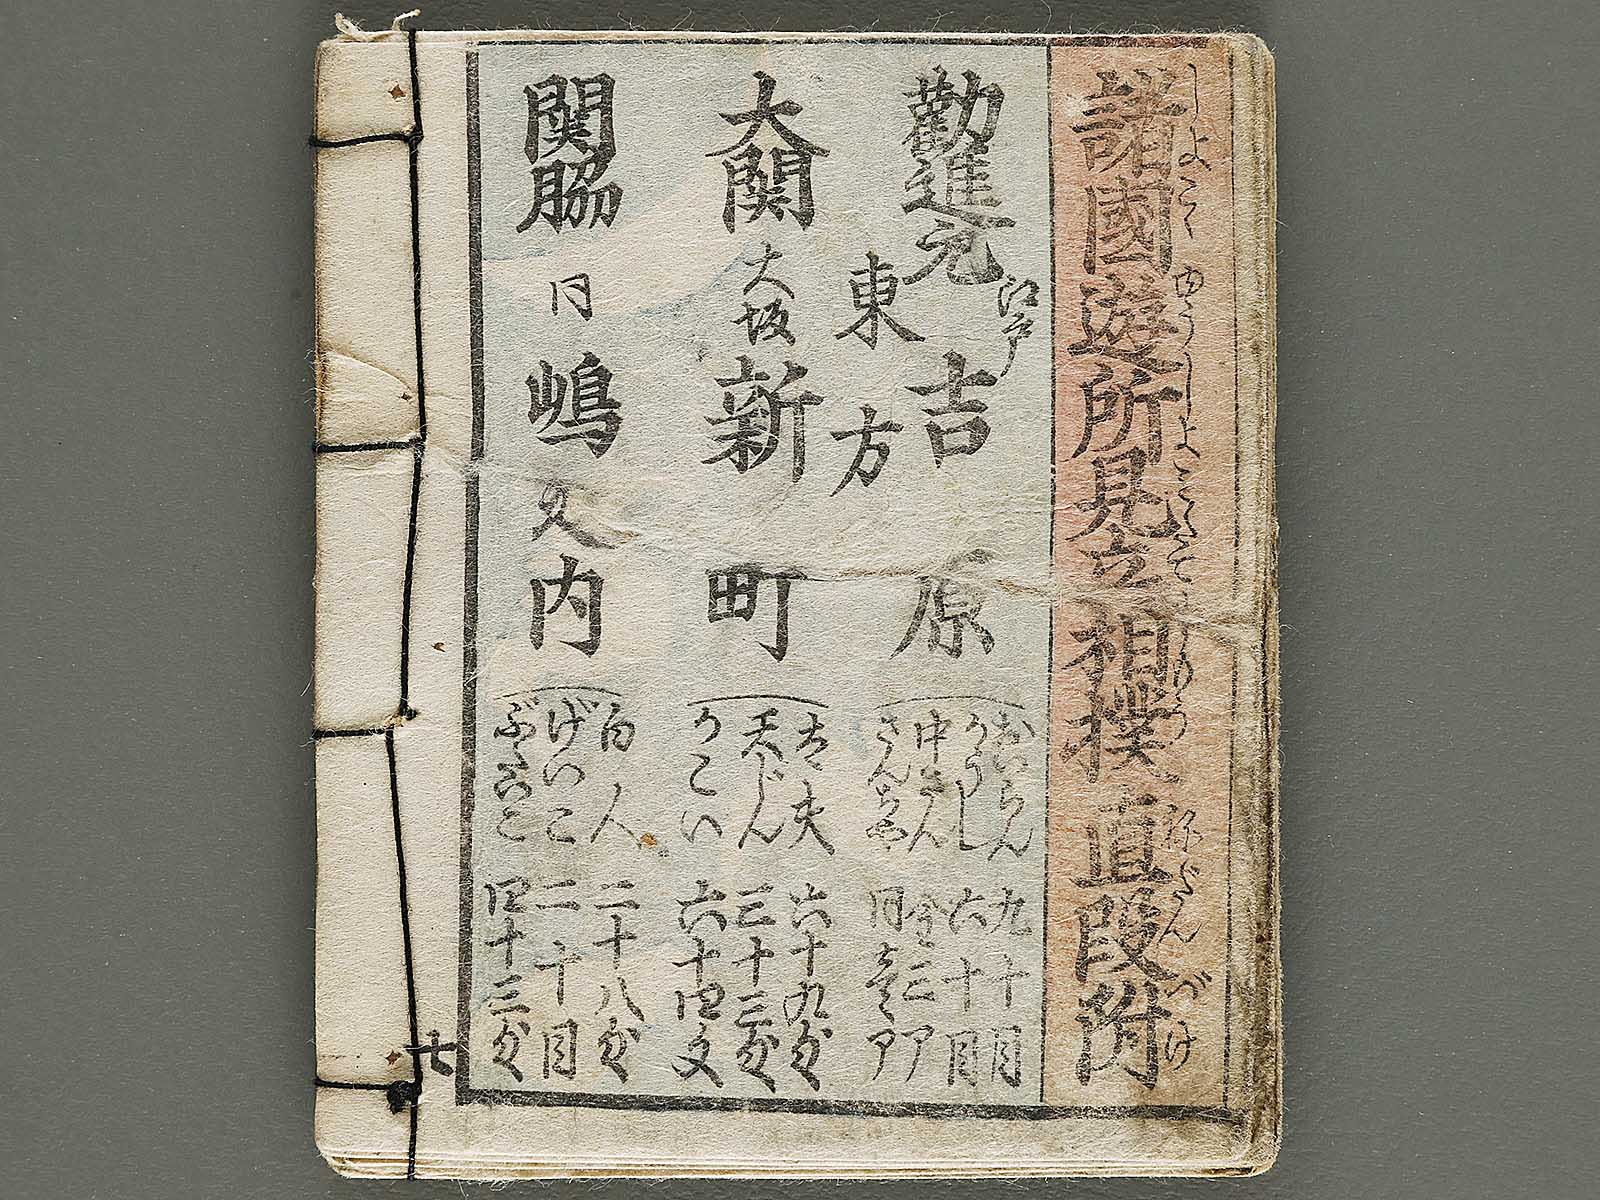 諸國遊所見立相撲直段附
しよこく ゆうしよみたて すもう ねだんづけ
勧進元
江戸
吉原
おいらん 九十目
かうし 六十目
中さん 金三分
東方
大関
大坂
新町
太夫 六十九匁
天じん 三十三匁
かこい 六十四文
関脇
同
嶋之内
白人 二十八匁
げいこ 二十目
四十三匁
七